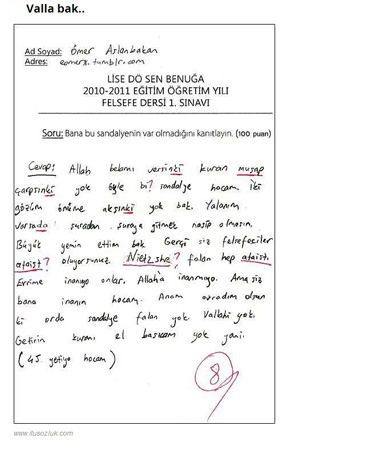 Valla bak..
Ad Soyad: Ömer Aslanbakan
Adres: eomerx.tumblr.com
LİSE DÖ SEN BENUĞA
2010-2011 EĞİTİM ÖĞRETİM YILI
FELSEFE DERSİ 1. SINAVI
Soru: Bana bu sandalyenin var olmadığını kanıtlayın. (100 puan)
Cevap: Allah belamı versinki kuran musap
çarpsınki yok öyle bi? sandalye hocam. İki
gözüm önüme aksınki yok bak. Yalanım
varsada suradan suraya gitmek nasip olmasın.
Büyük yemin ettim bak Gerçi siz felsefeciler
ataist? oluyorsunuz. Nietzshe? falan hep ataist.
Evrime inanıyo onlar. Allah'a inanmıyo. Ama siz
bana inanın hocam. Anam avradım olsun
ki orda sandalye falan yok. Vallahi yok.
Getirin kuranı el basıcam yok yani.
(45 yetiyo hocam)
8
www.itusozluk.com